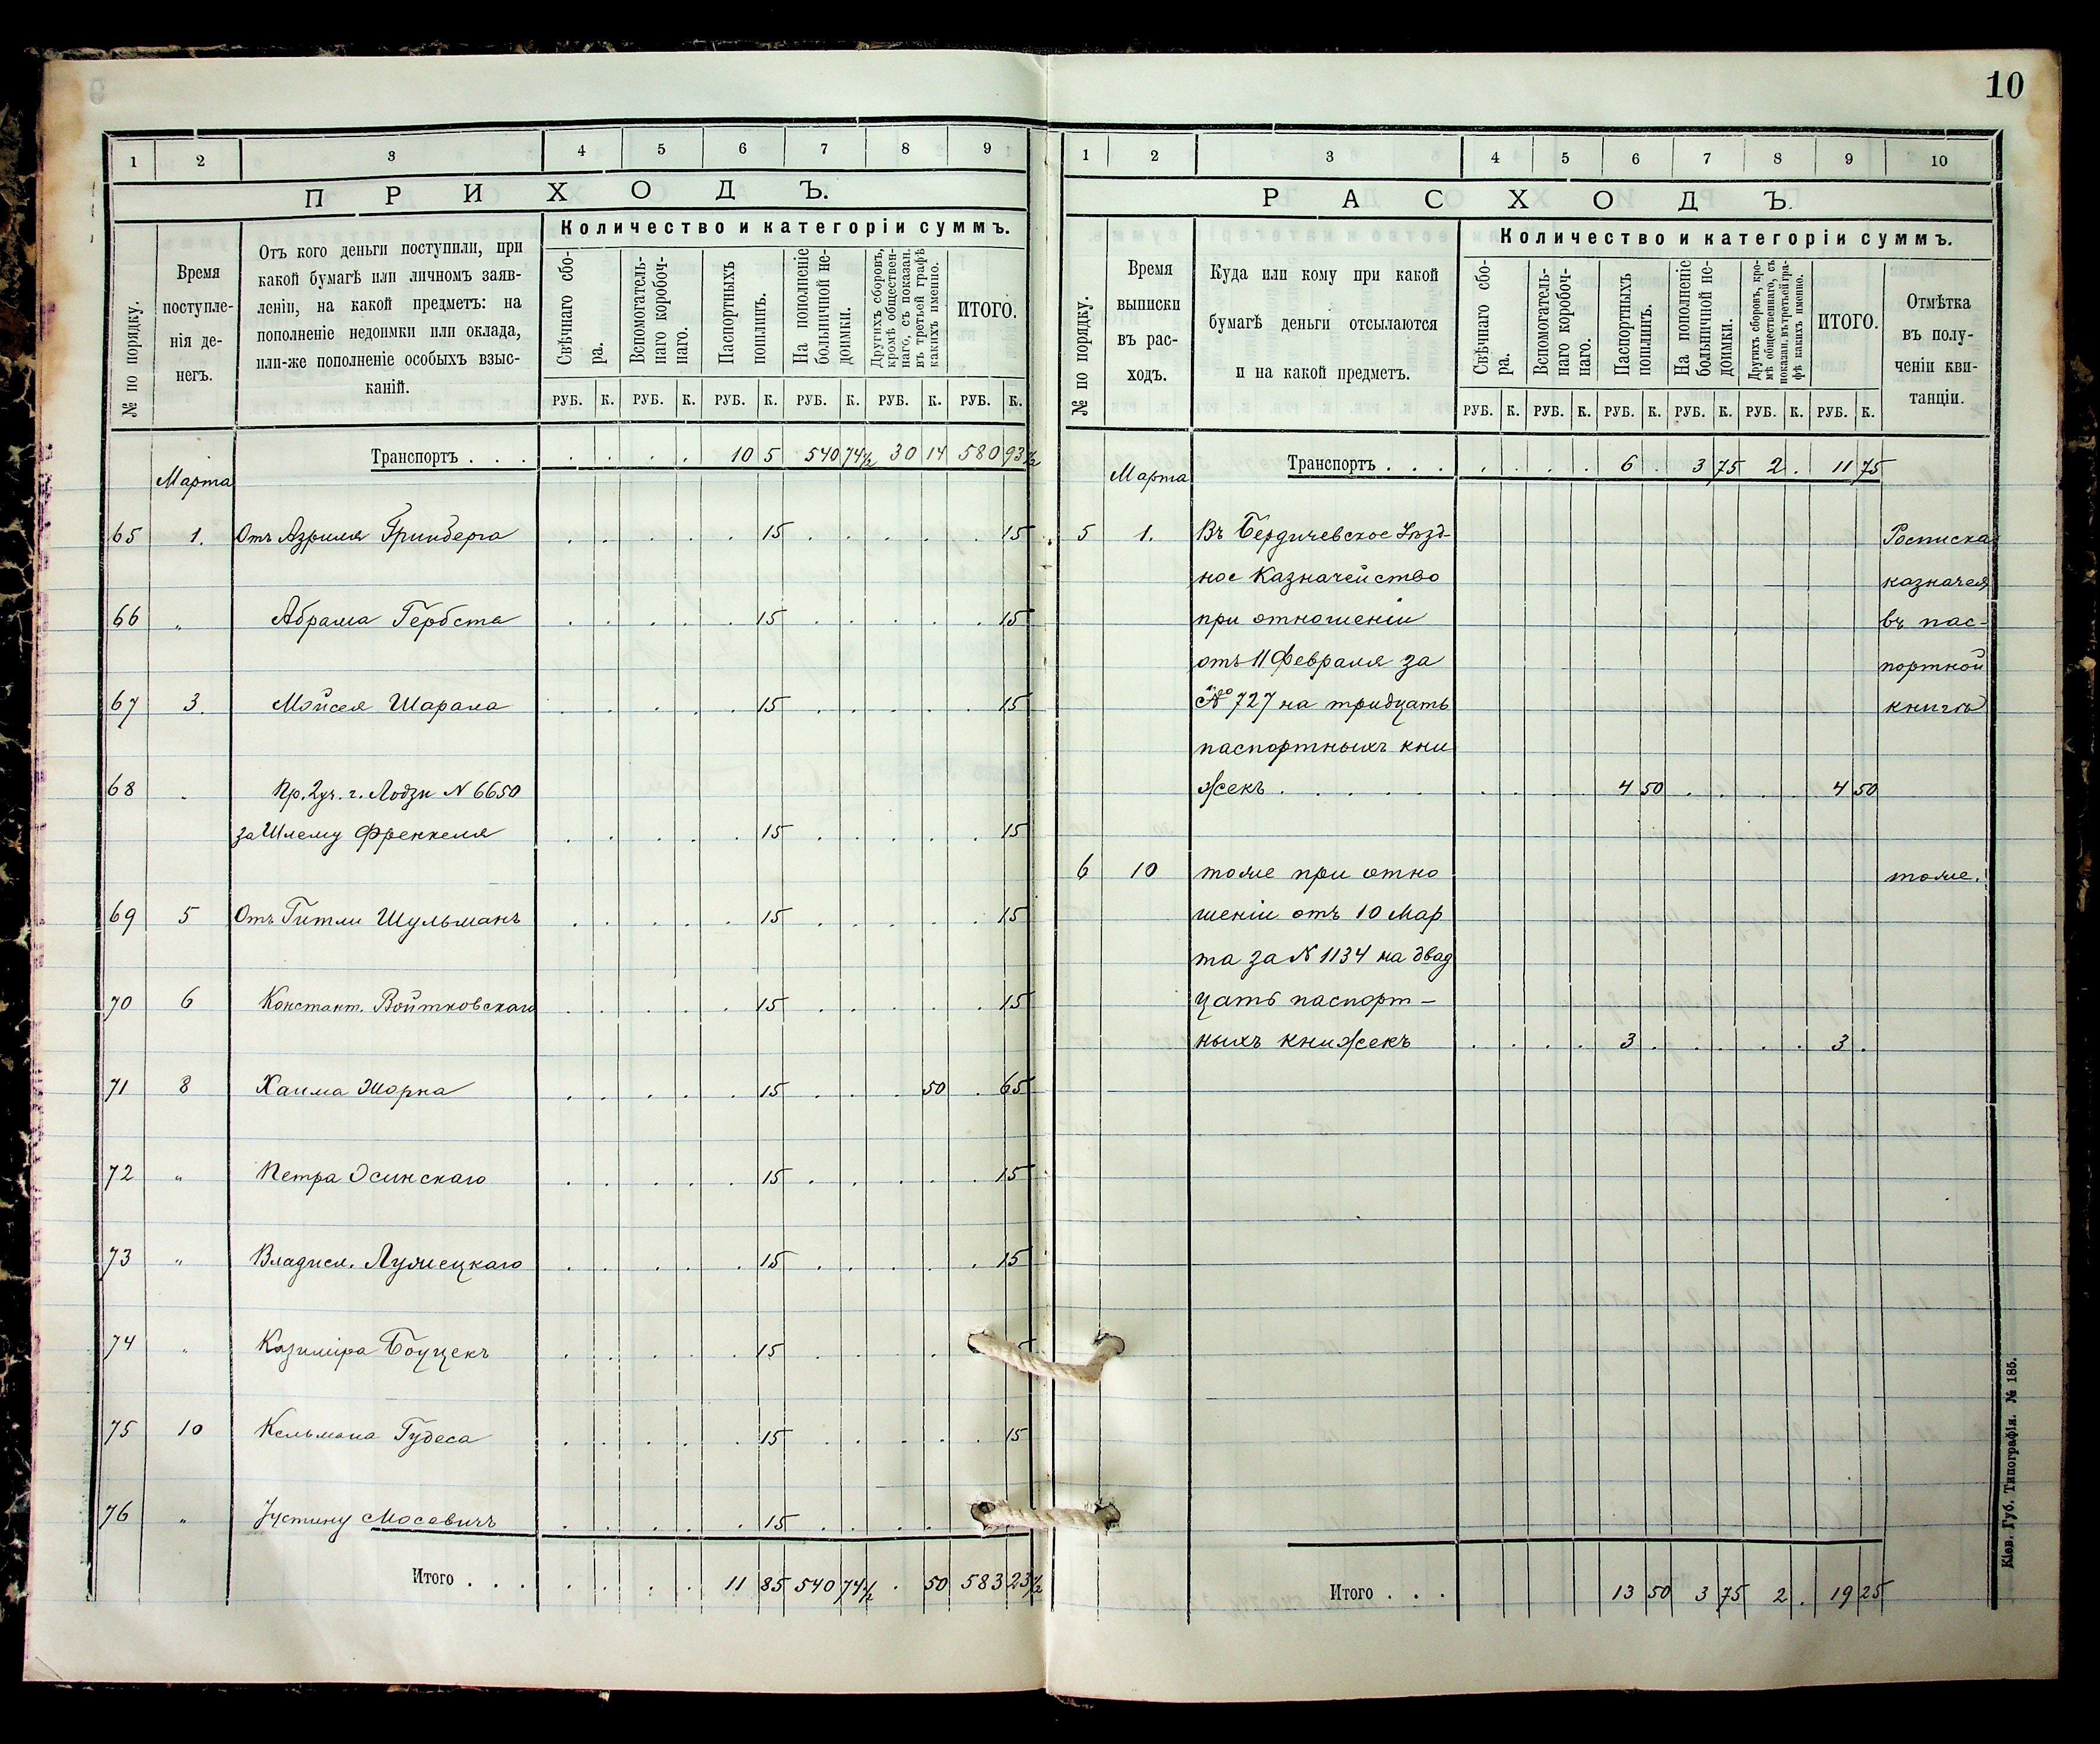 10
1 2 3 4 5 6 7 8 9
ПРИХОДЪ.
№ по порядку.
Время поступле-
нія де-
негъ.
Отъ кого деньги поступили, при
какой бумагѣ или личномъ заяв-
леніи, на какой предметъ: на
пополненіе недоимки или оклада,
или-же пополненіе особыхъ взыс-
каній.
Количество и категоріи суммъ.
Свѣчнаго сбо-
ра.
Вспомогатель-
наго коробоч-
наго.
Паспортныхъ
пошлинъ.
На пополненіе
больничной не-
доимки.
Другихъ сборовъ,
кромѣ обществен-
наго, съ показан.
въ третьей графѣ
какихъ именно.
ИТОГО.
РУБ. К. РУБ. К. РУБ. К. РУБ. К. РУБ. К. РУБ. К.
Транспортъ . . . . . . . 10 5 540 74½ 30 14 580 93½
Марта
65 1. Отъ Азриля Гринберга 15 15
66 " Абрама Гербста 15 15
67 3. Мойсея Шарака 15 15
68 " Пр. 2 уч. г. Лодзи N 6650
за Шлему Френкеля 15 15
69 5 Отъ Гитли Шульманъ 15 15
70 6 Констант. Войтковскаго 15 15
71 8 Хаима Шорка 15 50 65
72 " Петра Осинскаго 15 15
73 " Владисл. Лужецкаго 15 15
74 " Казиміра Боуцекъ 15 5
75 10 Кельмана Гудеса 15 15
76 " Устину Мосевичъ 15
Итого . . . . . . . 11 85 540 74½ . 50 583 23½
1 2 3 4 5 6 7 8 9 10
РАСХОДЪ.
№ по порядку.
Время
выписки
въ рас-
ходъ.
Куда или кому при какой
бумагѣ деньги отсылаются
и на какой предметъ.
Количество и категоріи суммъ.
Свѣчнаго сбо-
ра.
Вспомогатель-
наго коробоч-
наго.
Паспортныхъ
пошлинъ.
На пополненіе
больничной не-
доимки.
Другихъ сборовъ, кро-
мѣ общественнаго, съ
показан. въ третьей гра-
фѣ какихъ именно.
ИТОГО.
Отмѣтка
въ полу-
ченіи кви-
танціи.
РУБ. К. РУБ. К. РУБ. К. РУБ. К. РУБ. К. РУБ. К.
Транспортъ . . . . . . . 6 . 3 75 2 . 11 75
Марта
5 1. Въ Бердичевское Уѣзд- Росписка
ное Казначейство казначея
при отношеніи въ пас-
отъ 11 Февраля за портной
№ 727 на тридцать книгѣ
паспортныхъ кни
жекъ . . . . . 4 50 . . . . 4 50
6 10 тоже при отно тоже.
шеніи отъ 10 Мар
та за N 1134 на двад
цать паспорт-
ныхъ книжекъ . . . . 3 . . . . . 3 .
Итого . . . 13 50 3 75 2 . 19 25
Кіев. Губ. Типографія. № 185.